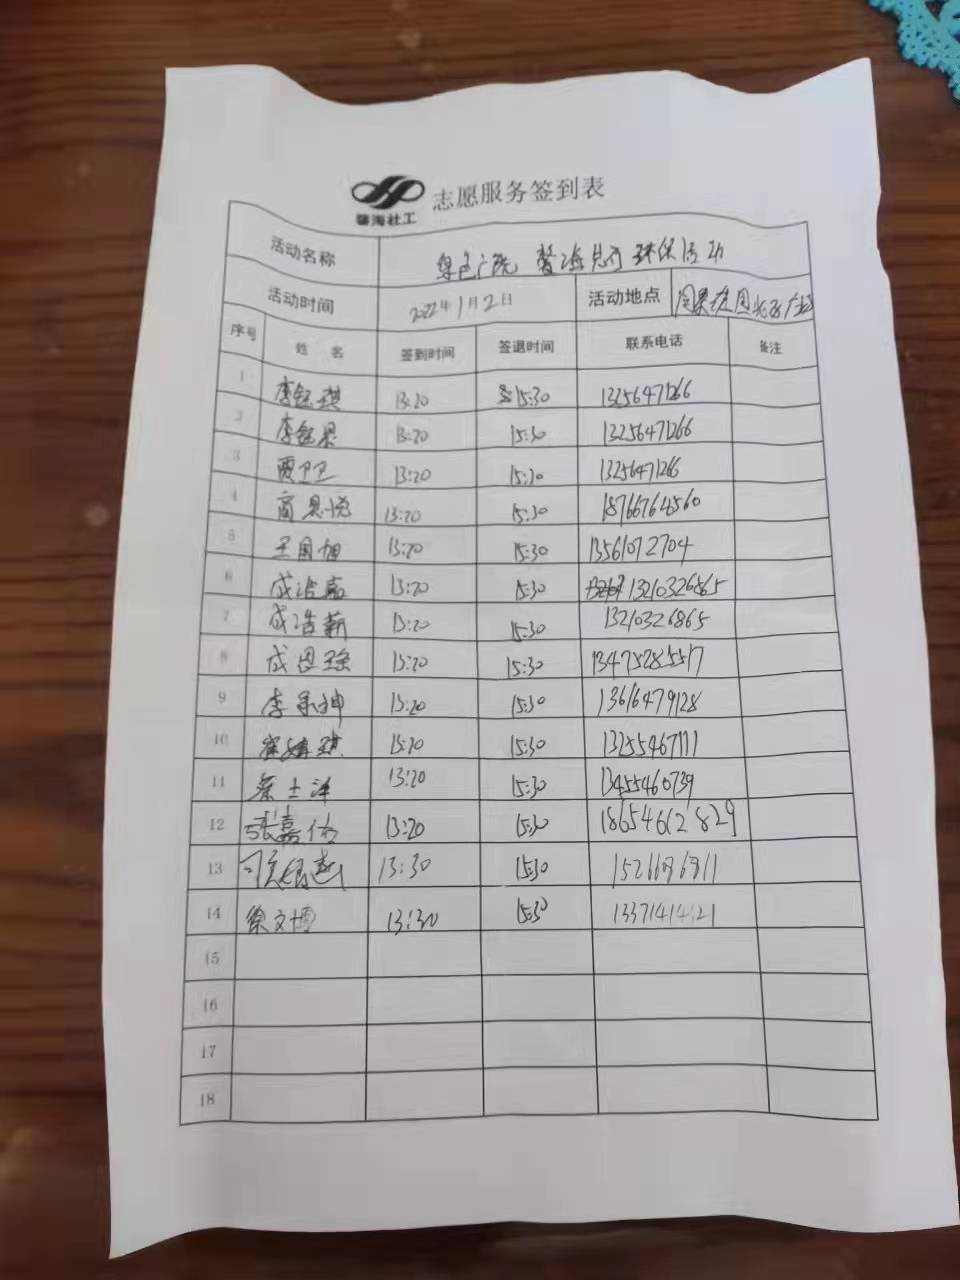 馨海社工 志愿服务签到表
活动名称 馨海 环保活动
活动时间 2022年1月2日 活动地点
序号 姓 名 签到时间 签退时间 联系电话 备注
1 李钰琪 13:20 15:30 13256471266
2 李钰果 13:20 15:30 13256471266
3 贾卫卫 13:20 15:30 13256471266
4 商恩悦 13:20 15:30 18766764560
5 王国旭 13:20 15:30 13561072704
6 成浩嘉 13:20 15:30 13210326865
7 成浩薪 13:20 15:30 13210326865
8 成恩 13:20 15:30 13475285517
9 李 坤 13:20 15:30 13616479128
10 琪 13:20 15:30 13255467111
11 蔡士洋 13:20 15:30 13455460739
12 张嘉 13:20 15:30 18654612829
13 13:30 15:30
14 徐文博 13:30 15:30 13371414121
15
16
17
18